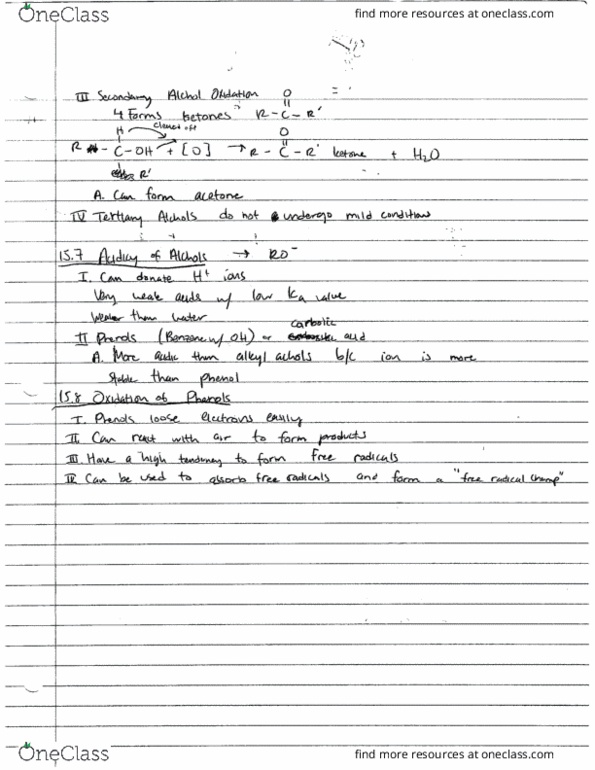 OneClass
find more resources at oneclass.com
III Secondary Alchol Oxidation
O
=
4 Forms ketones R-C-R'
H cleaved off
O
R - C-OH + [O] → R - C - R' ketone + H₂O
R'
A. Can form acetone
IV Tertiary Alchols do not undergo mild conditions
15.7 Acidicy of Alchols → RO⁻
I. Can donate H⁺ ions
Very weak acids w/ low Ka value
Weaker than water
carbolic
II Phenols (Benzene w/ OH) or acid
A. More acidic than alkyl achols b/c ion is more
stable than phenol
15.8 Oxidation of Phenols
I. Phenols loose electrons easily
II Can react with air to form products
III. Have a high tendency to form free radicals
IV Can be used to absorb free radicals and form a "free radical chomp"
OneClass
find more resources at oneclass.com